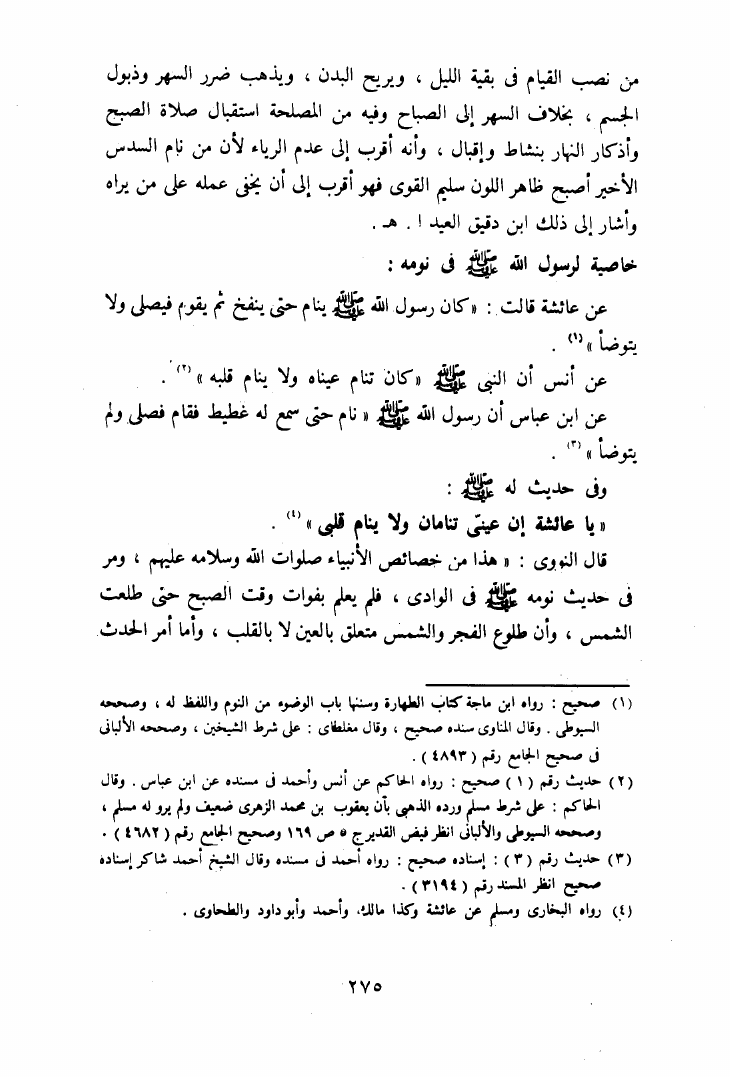 من نصب القيام فى بقية الليل ، ويريح البدن ، ويذهب ضرر السهر وذبول
الجسم ، بخلاف السهر إلى الصباح وفيه من المصلحة استقبال صلاة الصبح
وأذكار النهار بنشاط وإقبال ، وأنه أقرب إلى عدم الرياء لأن من نام السدس
الأخير أصبح ظاهر اللون سليم القوى فهو أقرب إلى أن يخفى عمله على من يراه
وأشار إلى ذلك ابن دقيق العيد ا . هـ .
خاصية لرسول الله ﷺ فى نومه :
عن عائشة قالت : « كان رسول الله ﷺ ينام حتى ينفخ ثم يقوم فيصلى ولا
يتوضأ » (١) .
عن أنس أن النبى ﷺ « كان تنام عيناه ولا ينام قلبه » (٢) .
عن ابن عباس أن رسول الله ﷺ « نام حتى سمع له غطيط فقام فصلى ولم
يتوضأ » (٣) .
وفى حديث له ﷺ :
« يا عائشة إن عينىّ تنامان ولا ينام قلبى » (٤) .
قال النووى : « هذا من خصائص الأنبياء صلوات الله وسلامه عليهم ، ومر
فى حديث نومه ﷺ فى الوادى ، فلم يعلم بفوات وقت الصبح حتى طلعت
الشمس ، وأن طلوع الفجر والشمس متعلق بالعين لا بالقلب ، وأما أمر الحدث
(١) صحيح : رواه ابن ماجة كتاب الطهارة وسننها باب الوضوء من النوم واللفظ له ، وصححه
السيوطى . وقال المناوى سنده صحيح ، وقال مغلطاى : على شرط الشيخين ، وصححه الألبانى
فى صحيح الجامع رقم ( ٤٨٩٣ ) .
(٢) حديث رقم (١) صحيح : رواه الحاكم عن أنس وأحمد فى مسنده عن ابن عباس . وقال
الحاكم : على شرط مسلم ورده الذهبى بأن يعقوب بن محمد الزهرى ضعيف ولم يرو له مسلم ،
وصححه السيوطى والألبانى انظر فيض القدير ج ٥ ص ١٦٩ وصحيح الجامع رقم ( ٤٦٨٢ ) .
(٣) حديث رقم (٣) : إسناده صحيح : رواه أحمد فى مسنده وقال الشيخ أحمد شاكر إسناده
صحيح انظر المسند رقم ( ٣١٩٤ ) .
(٤) رواه البخارى ومسلم عن عائشة وكذا مالك، وأحمد وأبو داود والطحاوى .
٢٧٥